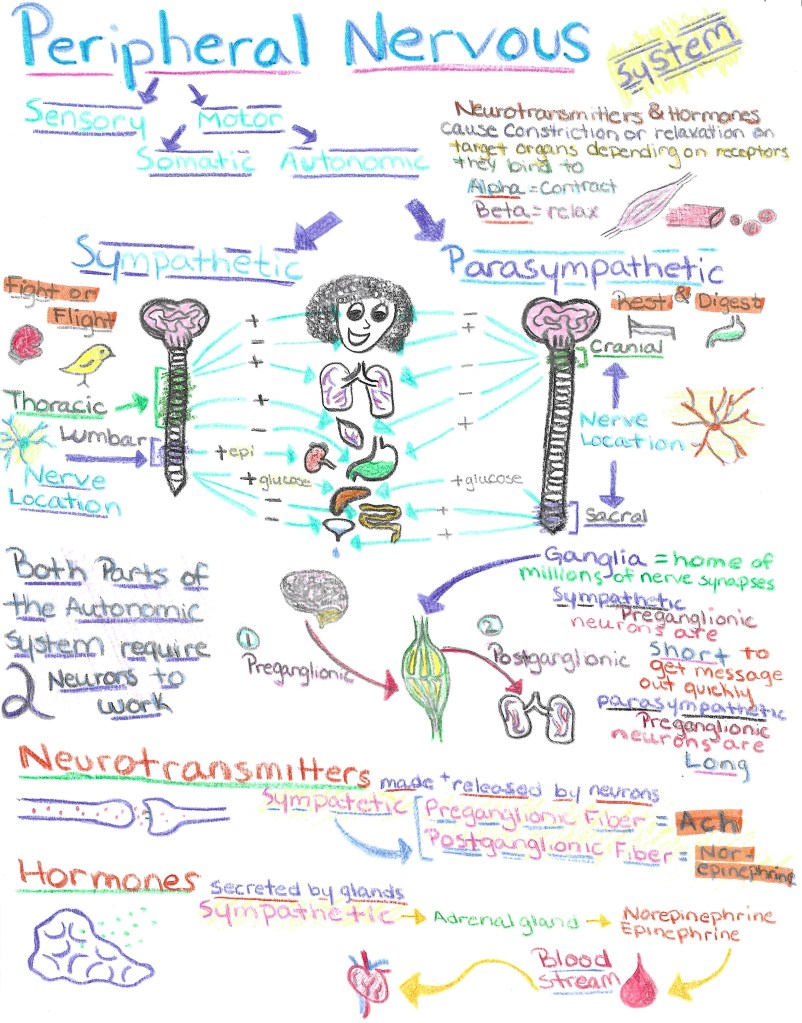 Peripheral Nervous
System
Sensory
Motor
Somatic
Autonomic
Neurotransmitters & Hormones
cause constriction or relaxation on
target organs depending on receptors
they bind to
Alpha = Contract
Beta = relax
Sympathetic
Parasympathetic
Fight or
Flight
Rest & Digest
Cranial
Thoracic
Lumbar
Nerve
Location
Nerve
Location
Sacral
+
+
+
-
+epi
+glucose
-
-
-
+
-
-
+
+glucose
+
+
Both Parts of
the Autonomic
system require
2 Neurons to
work
1
Preganglionic
2
Postganglionic
Ganglia = home of
millions of nerve synapses
Sympathetic
Preganglionic
neurons are
Short to
get message
out quickly
parasympathetic
Preganglionic
neurons are
Long
Neurotransmitters made + released by neurons
Sympatetic
Preganglionic Fiber = Ach
Postganglionic Fiber = Nor-
epinephrine
Hormones
secreted by glands
Sympathetic
Adrenal gland
Norepinephrine
Epinephrine
Blood
stream